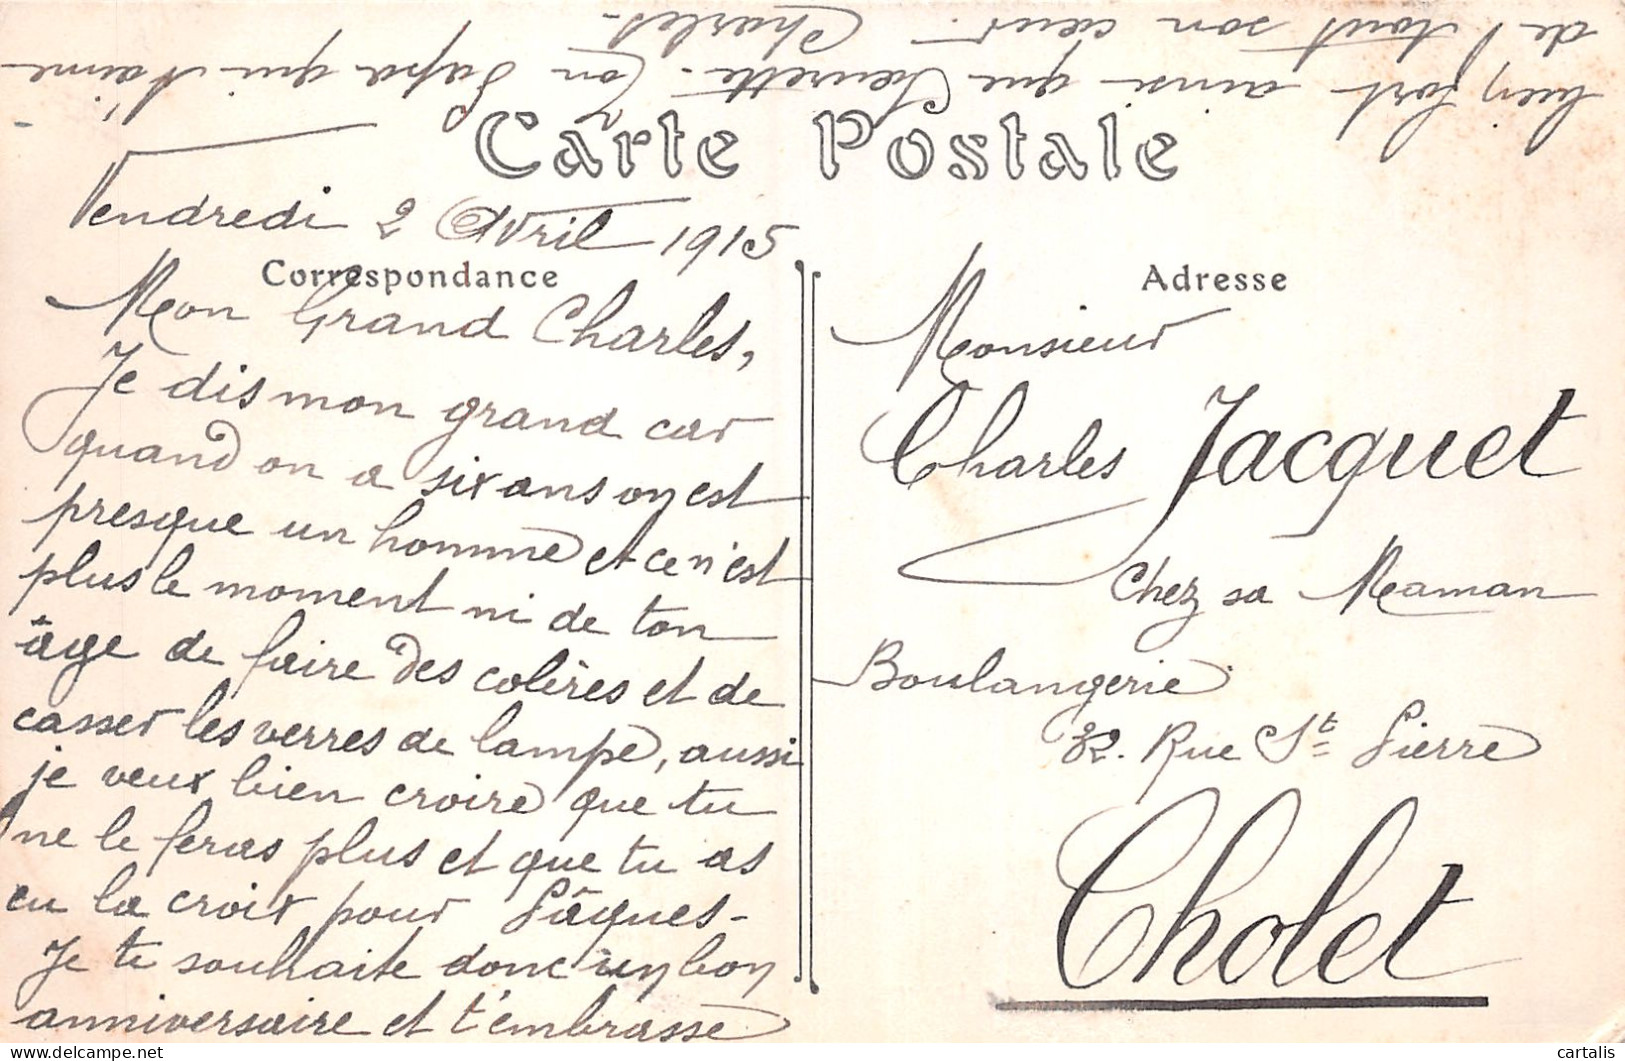 Carte Postale
Vendredi 2 Avril 1915
Correspondance
Mon Grand Charles,
Je dis mon grand car
quand on a six ans on est
presque un homme et ce n'est
plus le moment ni de ton
âge de faire des colères et de
casser les verres de lampe, aussi
je veux bien croire que tu
ne le feras plus et que tu as
eu la croix pour Pâques-
Je te souhaite donc un bon
anniversaire et t'embrasse
bien fort ainsi que Ton Papa qui t'aime
de tout son cœur. Charles-
Adresse
Monsieur
Charles Jacquet
Chez sa Maman
Boulangerie
32. Rue St Pierre
Cholet
cartalis